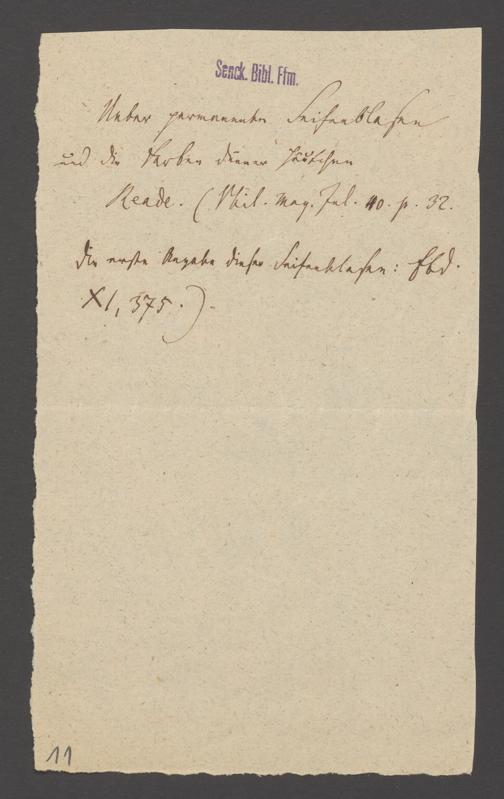 Senck. Bibl. Ffm.
Ueber permanente Seifenblasen
und die Farben dünner Häutchen
Reade. (Phil. Mag. Jul. 40. p. 32.
die erste Angabe dieser Seifenblasen: Ebd.
XI, 375.).
11